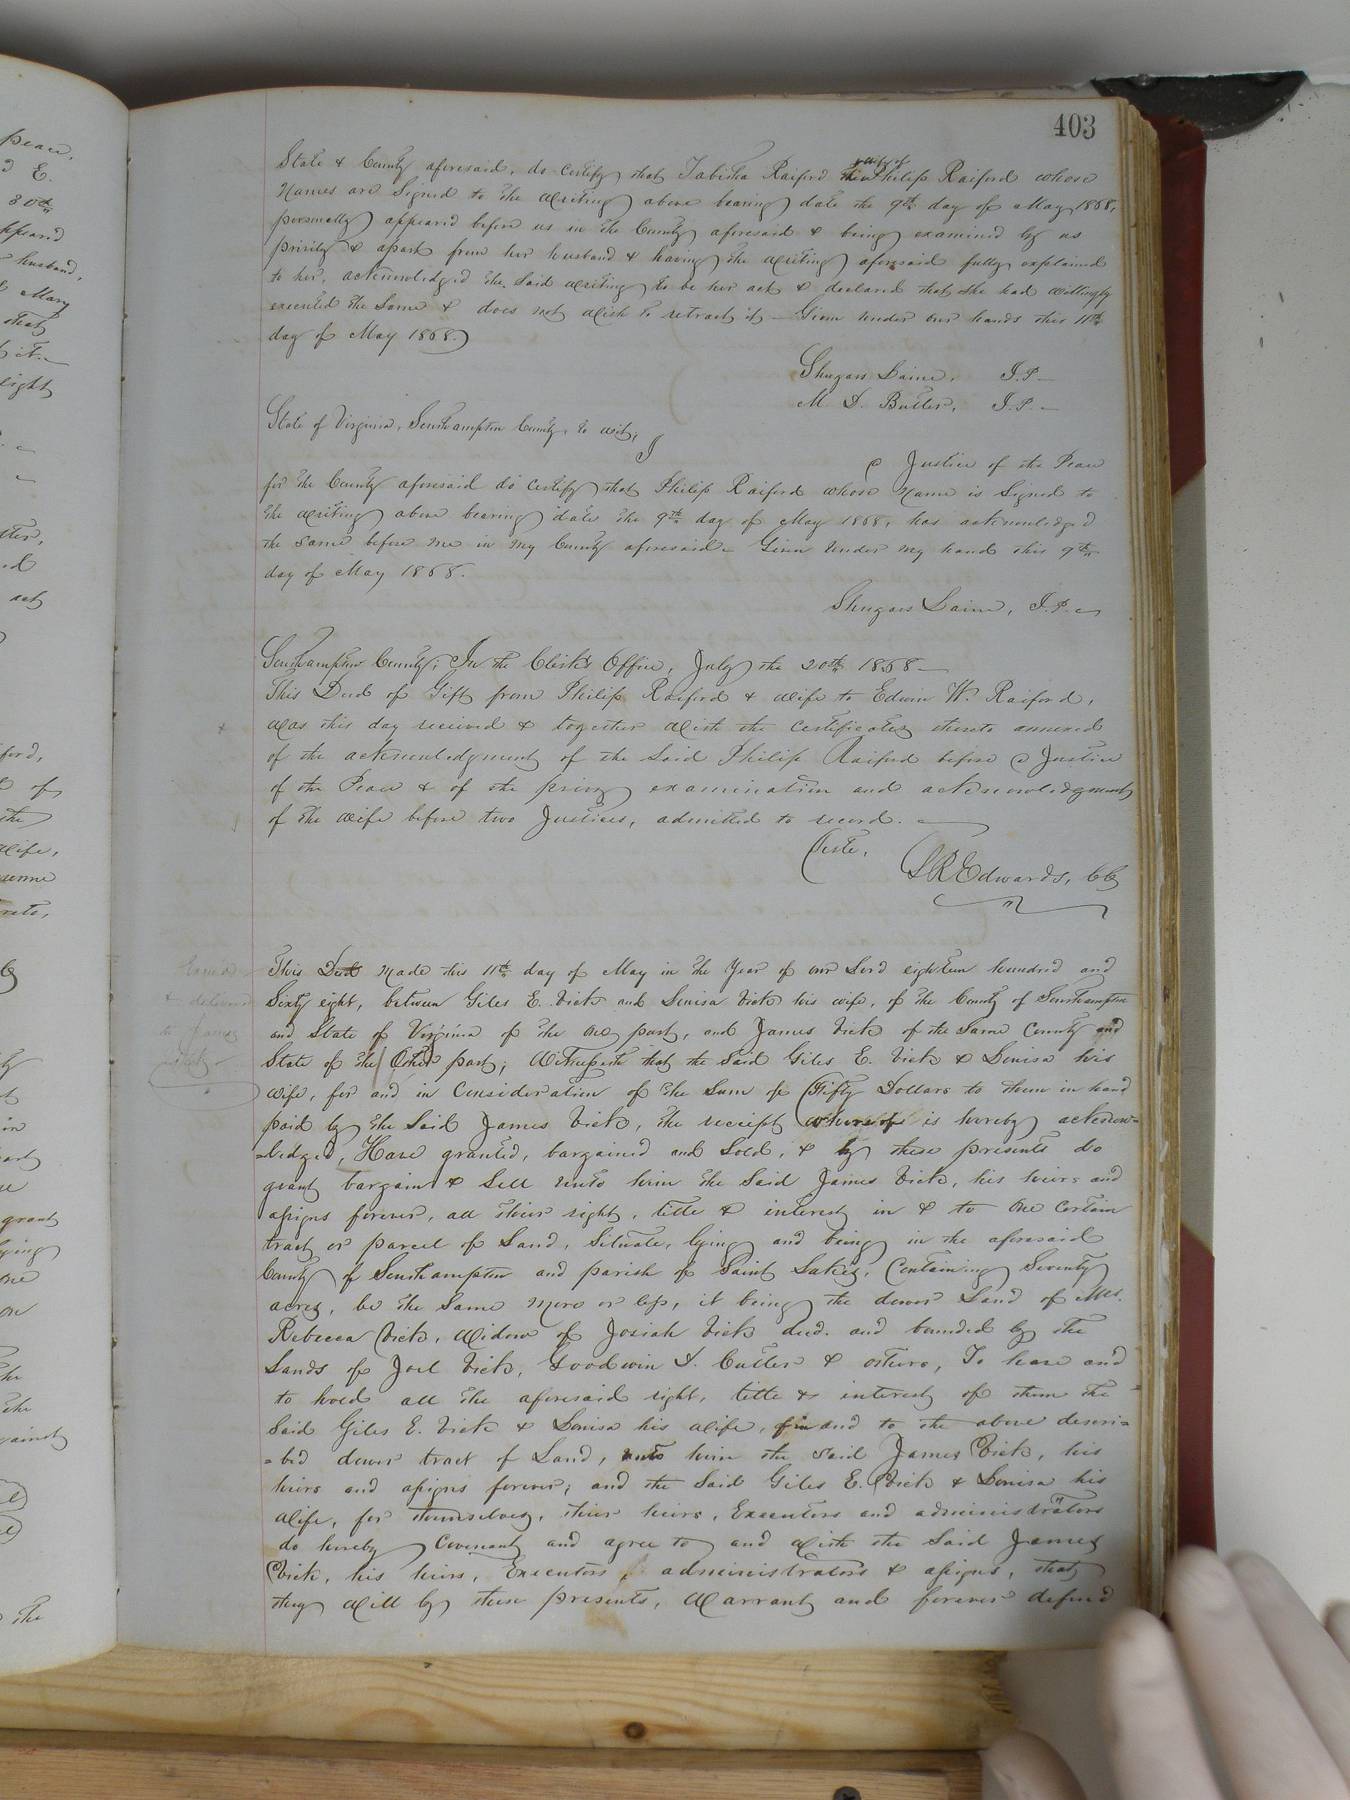 403
State & County aforesaid, do certify that Tabitha Raiford wife of Philip Raiford whose
Names are Signed to the writing above bearing date the 9th day of May 1868,
personally appeared before us in the County aforesaid & being examined by us
privily & apart from her husband & having the writing aforesaid fully explained
to her, acknowledged the Said writing to be her act & declared that She had willingly
executed the Same & does not wish to retract it— Given under our hands this 11th
day of May 1868.
Shugars Laine, J.P—
M. D. Butler, J.P.—
State of Virginia, Southampton County, to wit;
I a Justice of the Peace
for the County aforesaid do certify that Philip Raiford whose Name is Signed to
the writing above bearing date the 9th day of May 1868, has acknowledged
the same before me in my County aforesaid. Given under my hand this 9th
day of May 1868.
Shugars Laine, J.P.
Southampton County; In the Clerk's Office, July the 20th 1868—
This Deed of Gift from Philip Raiford & wife to Edwin W. Raiford,
was this day received & together with the certificates thereto annexed
of the acknowledgment of the Said Philip Raiford before a Justice
of the Peace & of the privy examination and acknowledgment
of the wife before two Justices, admitted to record.
Teste,
LREdwards, CC
This Deed Made this 11th day of May in the Year of our Lord eighteen hundred and
Sixty eight, between Giles E. Vick and Louisa Vick his wife, of the County of Southampton
and State of Virginia of the one part, and James Vick of the Same County and
State of the Other part; Witnesseth that the Said Giles E. Vick & Louisa his
wife, for and in Consideration of the Sum of Fifty Dollars to them in hand
paid by the Said James Vick, the receipt whereof is hereby acknow=
=ledged, Have granted, bargained and Sold, & by these presents do
grant bargain & Sell unto him the Said James Vick, his heirs and
assigns forever, all their right, title & interest in & to one certain
tract or parcel of Land, Situate, lying and being in the aforesaid
County of Southampton and parish of Saint Lukes, Containing Seventy
acres, be the Same more or less, it being the dower Land of Mrs.
Rebecca Vick, Widow of Josiah Vick decd. and bounded by the
Lands of Joel Vick, Goodwin D. Butler & others, To have and
to hold all the aforesaid right, title & interest of them the
Said Giles E. Vick & Louisa his wife, in and to the above descri=
=bed dower tract of Land, unto him the Said James Vick, his
heirs and assigns forever; and the Said Giles E. Vick & Louisa his
wife, for themselves, their heirs, Executors and administrators
do hereby Covenant and agree to and with the Said James
Vick, his heirs, Executors, administrators & assigns, that
they will by these presents, Warrant and forever defend